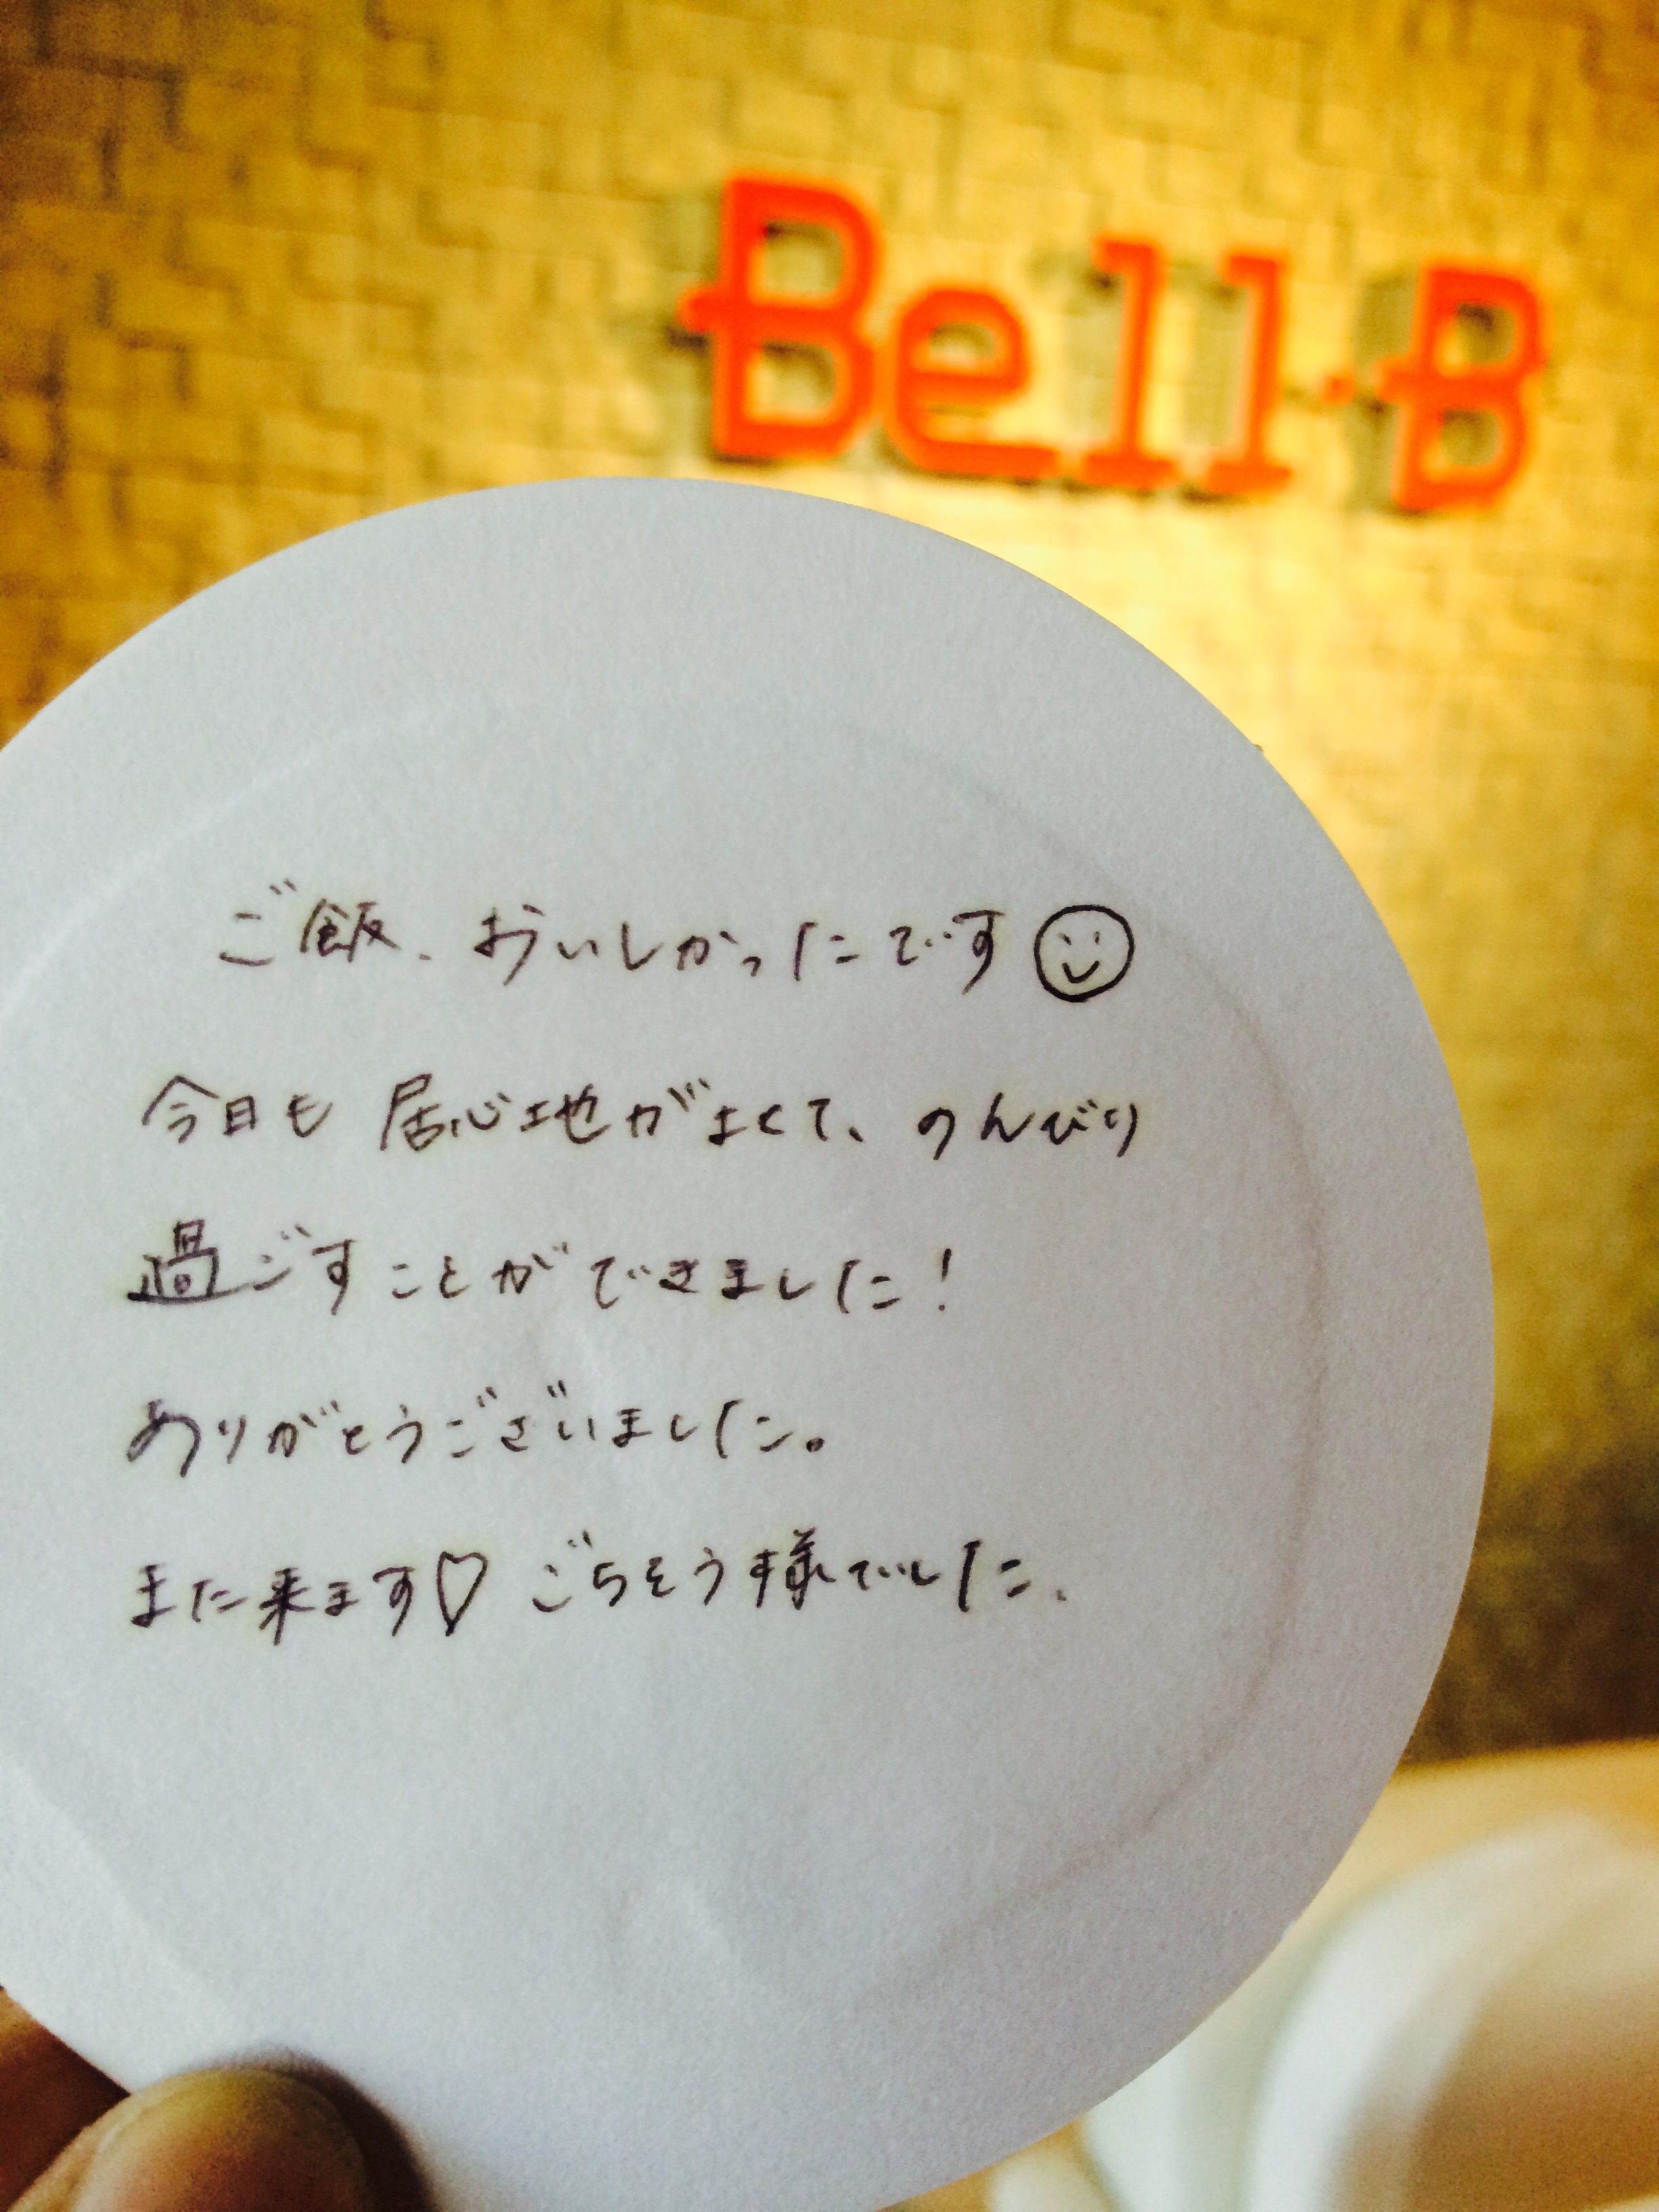 Bell·B
ご飯、おいしかったです☺
今日も居心地がよくて、のんびり
過ごすことができました！
ありがとうございました。
また来ます♡ ごちそう様でした。